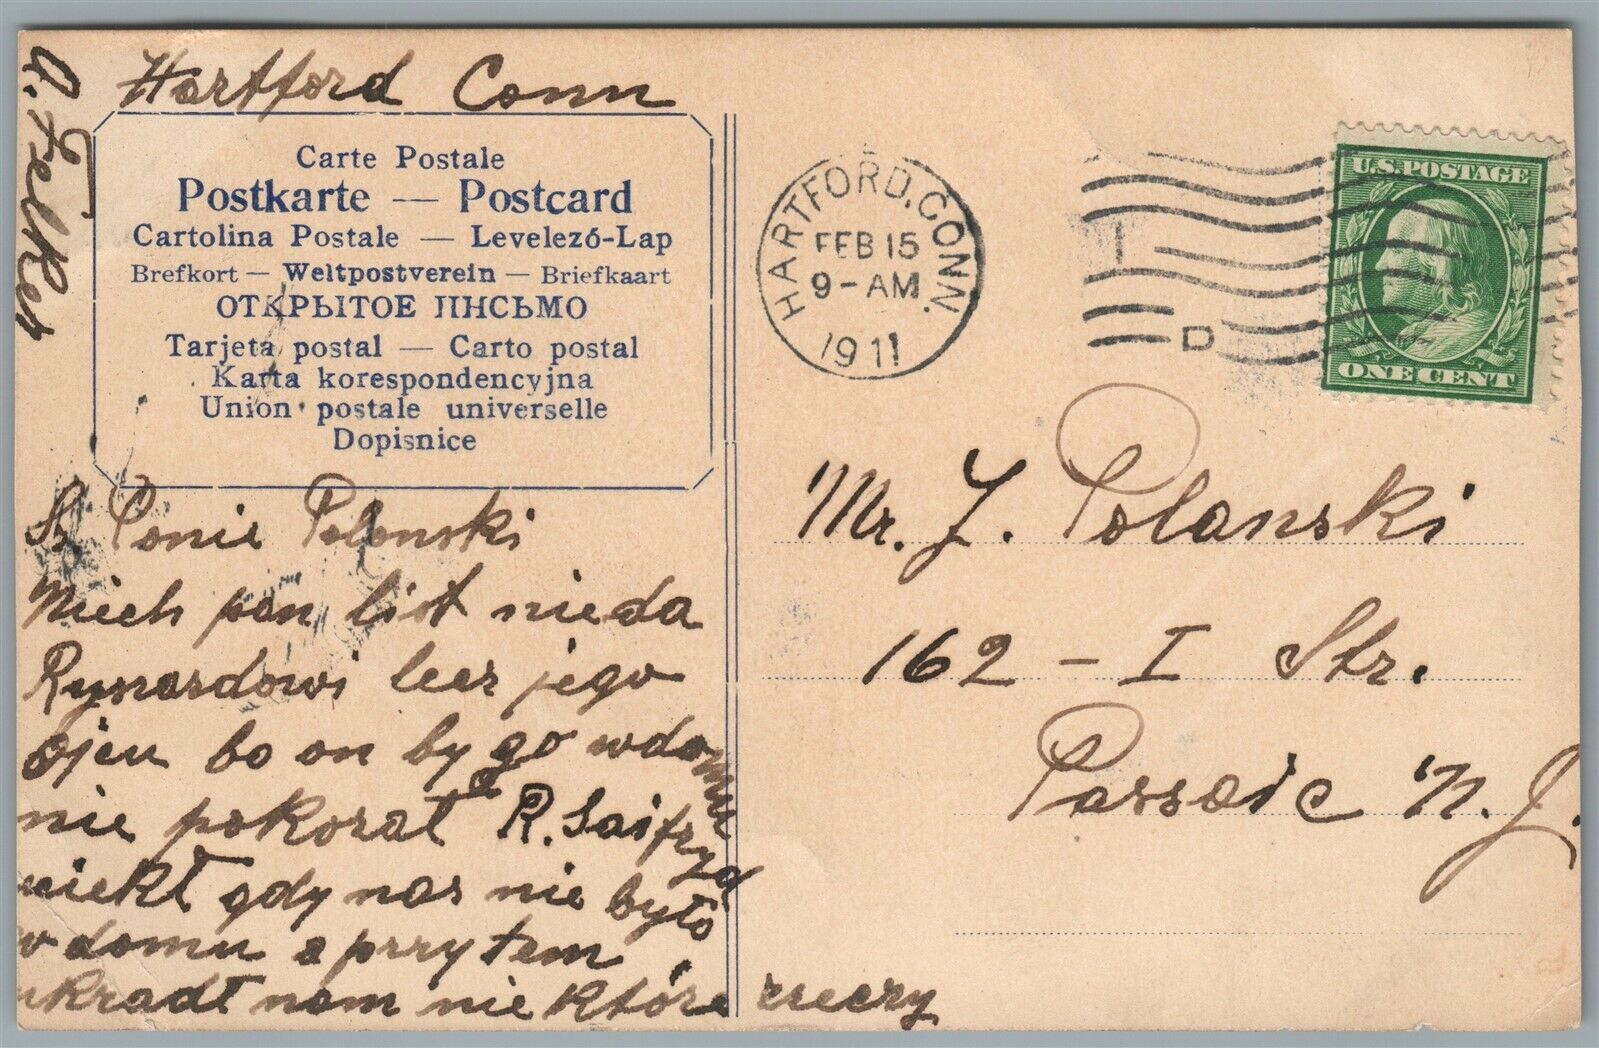 Hartford Conn
A. Felker
Carte Postale
Postkarte — Postcard
Cartolina Postale — Levelező-Lap
Brefkort — Weltpostverein — Briefkaart
ОТКРЫТОЕ ПИСЬМО
Tarjeta postal — Carto postal
Karta korespondencyjna
Union postale universelle
Dopisnice
S. Panie Polonski
Niech pan list nieda
Rysardowi lecz jego
ojcu bo on by go wdomu
nie pokorał R. Saifryd
uciekł gdy nas nie było
w domu a przytem
ukradł nam niektóre rzeczy
HARTFORD, CONN.
FEB 15
9-AM
1911
D
U.S. POSTAGE
ONE CENT
Mr. J. Polanski
162 - I Str.
Passaic N. J.